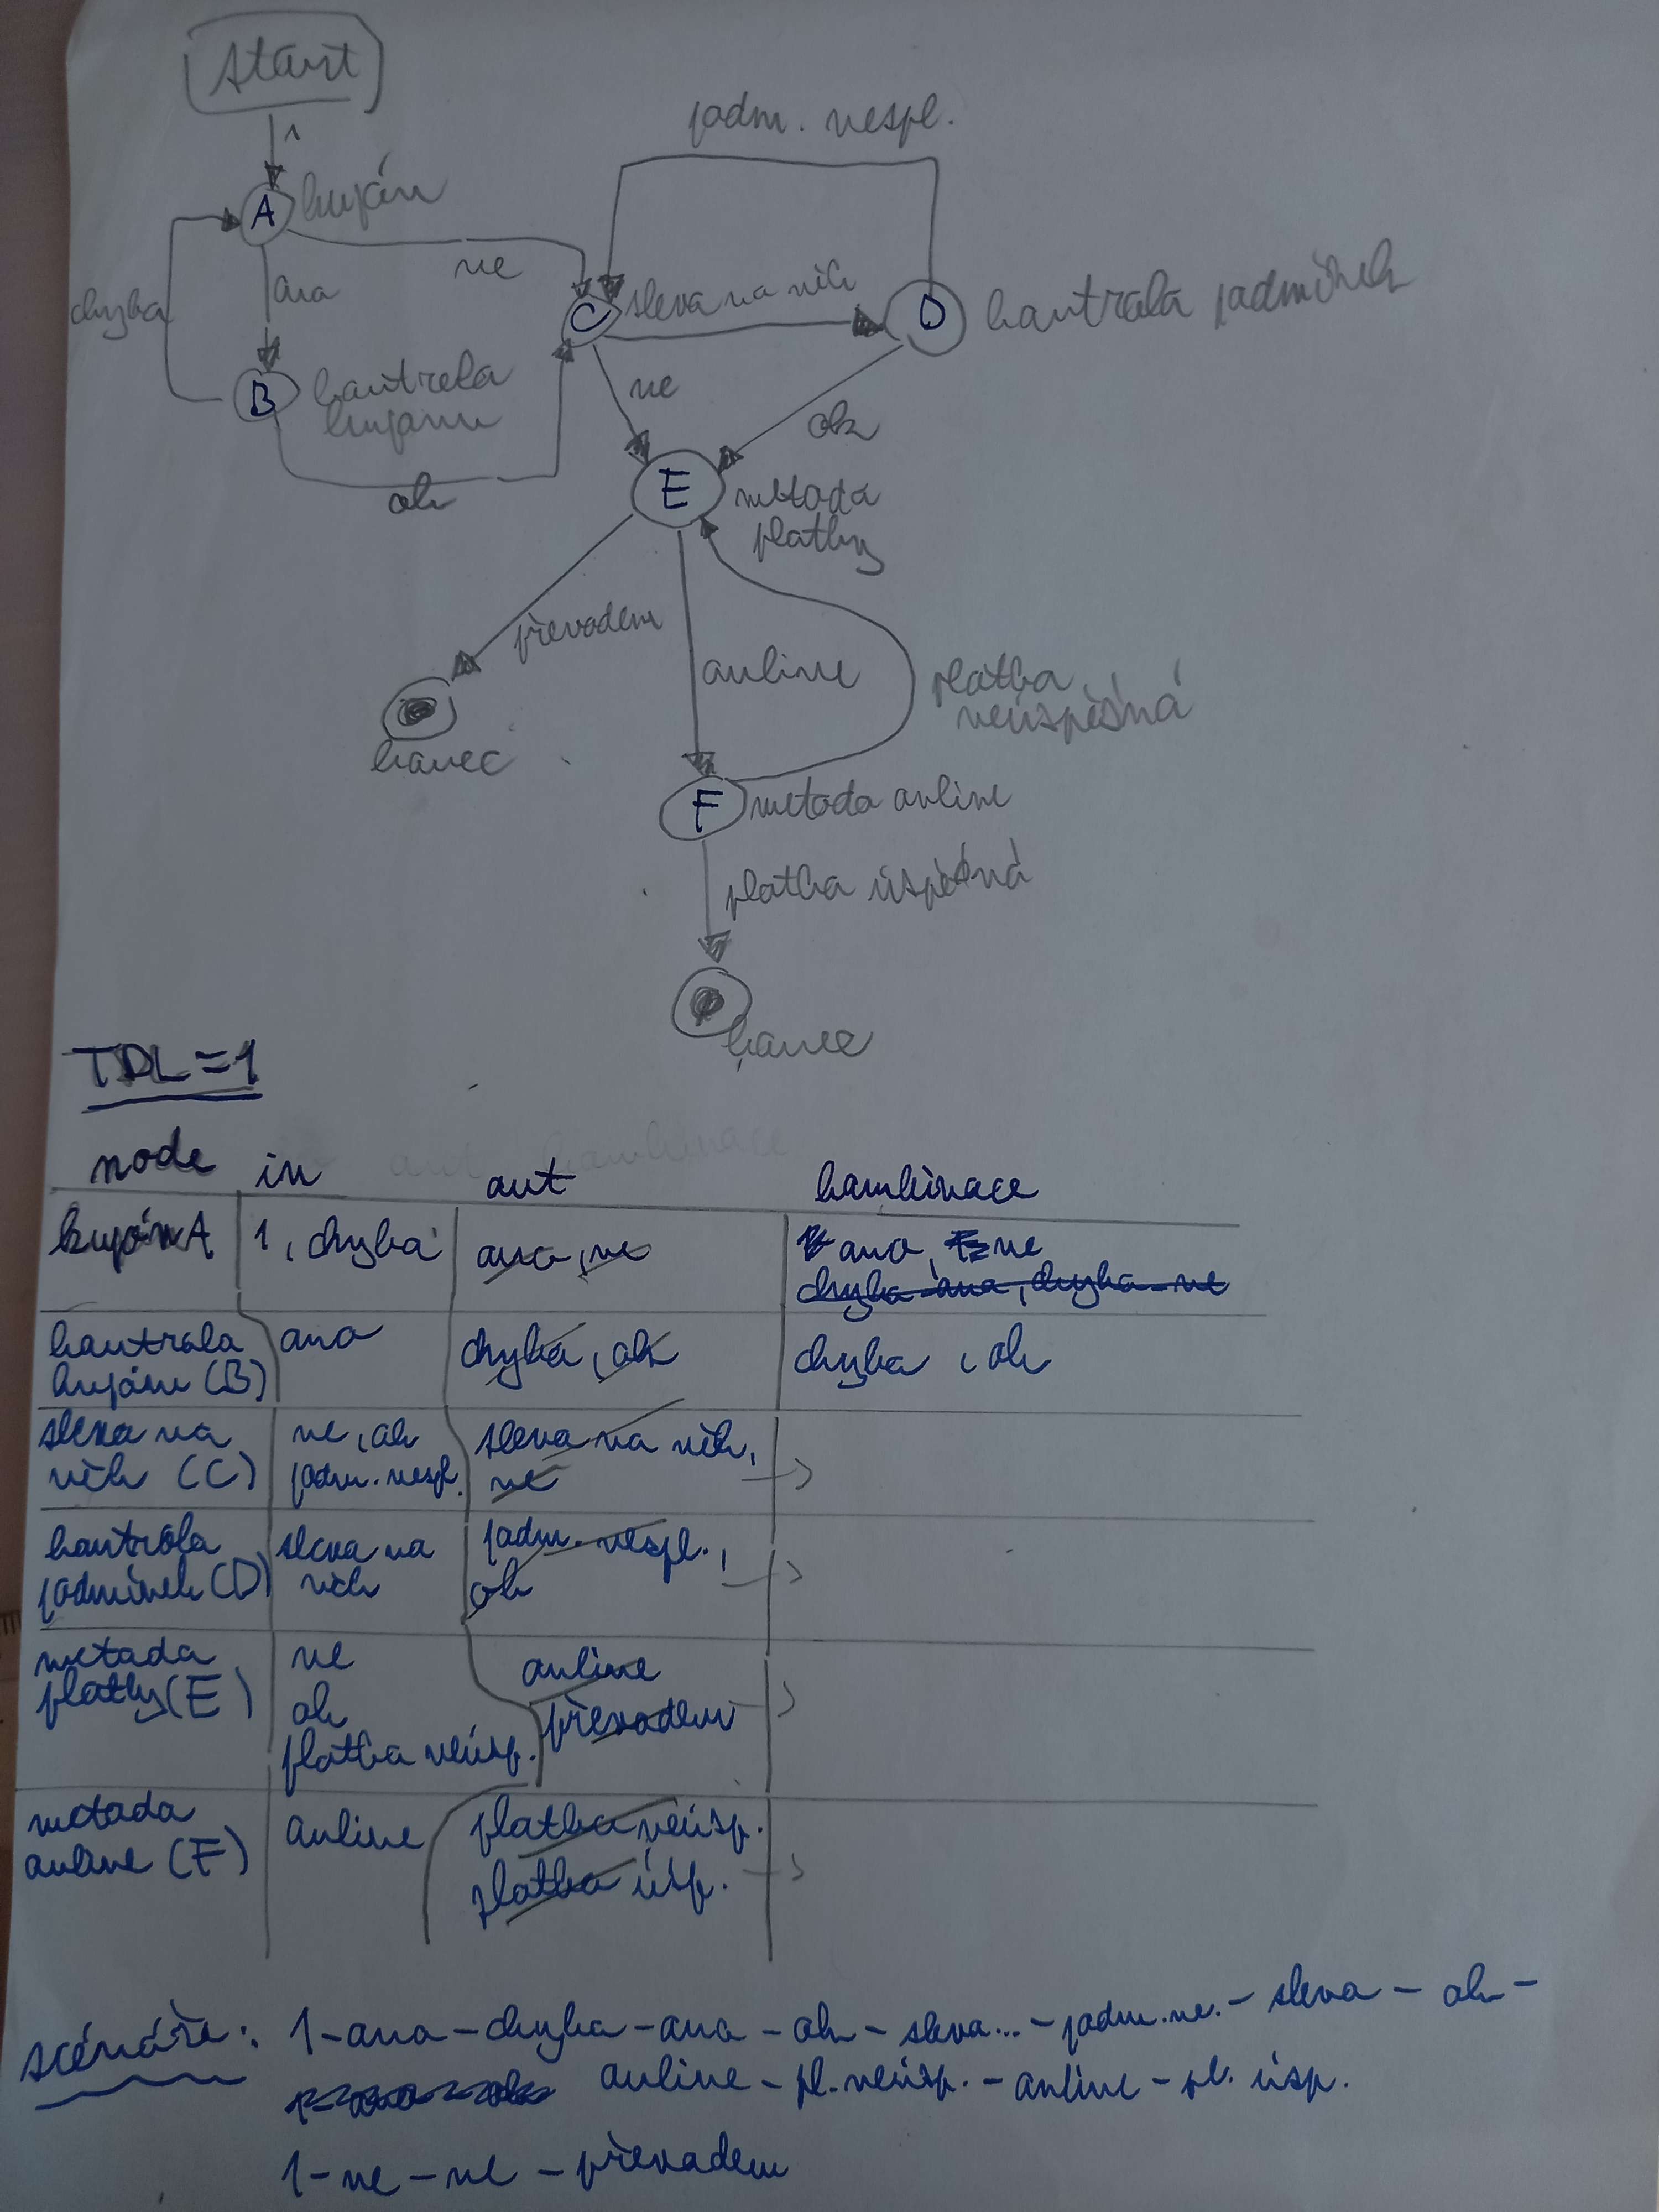 start
1
podm. nespl.
A kupón
ne
chyba
ano
C
sleva na věk
D
kontrola podmínek
B
kontrola
kuponu
ne
ok
ok
E
metoda
platby
převodem
online
platba
neúspěšná
konec
F metoda online
platba úspěšná
konec
TDL=1
node in out kombinace
kupón A 1, chyba ano, ne ano, ne
chyba-ano, chyba-ne
kontrola
kupónu (B) ano chyba, ok chyba, ok
sleva na
věk (C) ne, ok
podm. nespl. sleva na věk,
ne →
kontrola
podmínek (D) sleva na
věk podm. nespl.,
ok →
metoda
platby (E) ne
ok
platba neúsp. online
převodem →
metoda
online (F) online platba neúsp.
platba úsp. →
scénáře: 1-ano-chyba-ano-ok-sleva...-podm.ne.-sleva-ok-
online-pl.neúsp.-online-pl. úsp.
1-ne-ne-převodem